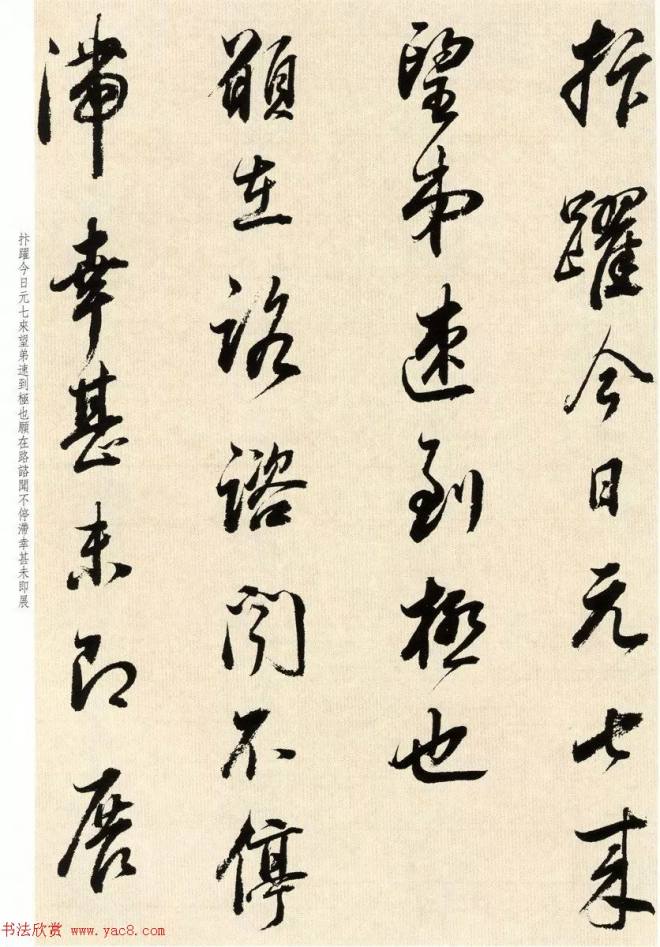 抃躍今日元七来
望弟速到極也
願在路諮聞不停
滞幸甚未即展
抃躍今日元七來望弟速到極也願在路諮聞不停滯幸甚未即展
书法欣赏 www.yac8.com